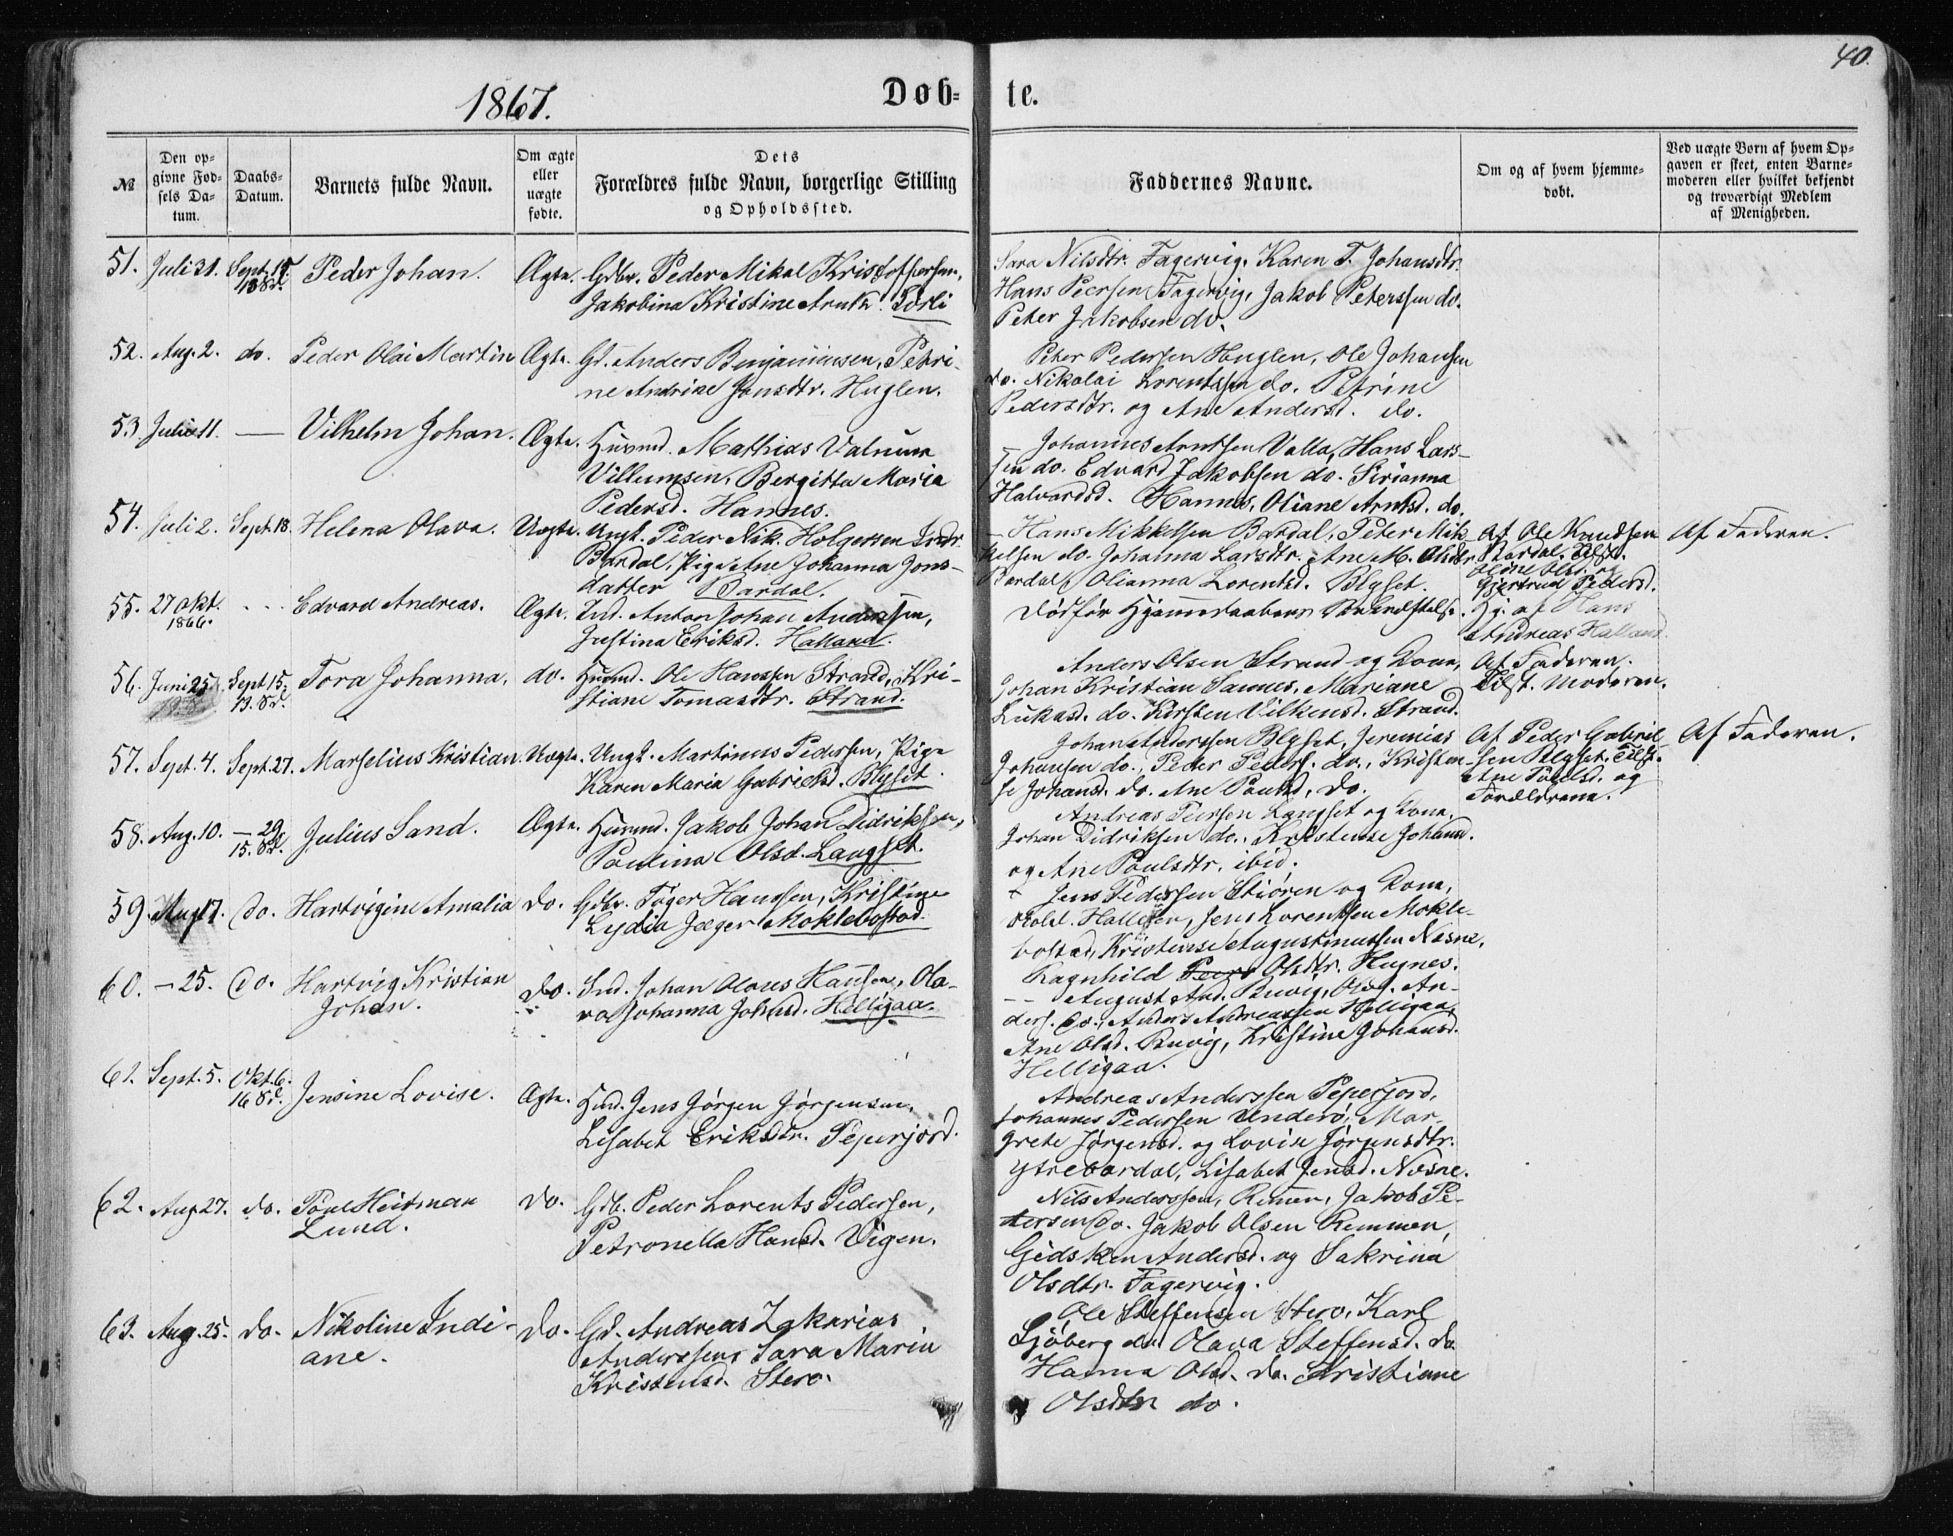 40.
1867.
Døb-
te.
№
Den op-
givne Fød-
sels Da-
tum.
Daabs-
Datum.
Barnets fulde Navn.
Om ægte
eller
uægte
fødte.
Dets
Forældres fulde Navn, borgerlige Stilling
og Opholdssted.
Faddernes Navne.
Om og af hvem hjemme-
døbt.
Ved uægte Børn af hvem Op-
gaven er skeet, enten Barne-
moderen eller hvilket bekjendt
og troværdigt Medlem
af Menigheden.
51. Juli 31. Sept. 15. Peder Johan. Ægte. Gdbr. Peder Mikal Kristoffersen,
Jakobina Kristine Sørli
Sara Nilsdtr. Fagervig, Karen F. Johansdtr.
Hans Peersen Fagervig, Jakob Peterssen do.
Peter Jakobsen do.
52. Aug. 2. do. Peder Olai Martin Ægte. Gd. Anders Benjaminsen, Petri-
ne Andrine Jonsdtr. Huglen.
Peter Pedersen Huglen, Ole Johansen
do. Nikolai Lorentssen do. Petrine
Pedersdtr. og Ane Andersd. do.
53. Juli 11. — Vilhelm Johan. Ægte. Huusmd. Mathias
Villumsen, Bergitta Maria
Pedersd. Hannes.
Johannes Arntsen Valla, Hans Lars-
sen do. Edvard Jakobsen do. Sirianna
Halvardsd. Hannes, Oliane Arntsd. do.
54. Juli 2. Sept. 18. Helena Olava. Uægte. Ungk. Peder Nik. Holgersen
Bardal, Pige Ane Johanna Jons-
datter Bardal.
Hans Mikkelsen Bardal, Peter Mik-
kelsen do. Johanna Larsdtr. Ane M. Olsdtr.
Bardal, Olianna Lorentsd. Blyset.
Af Ole Knudsen
Bardal. Tilst.
Oline Olsd. og
Gjertrud Pedersd.
Af Faderen.
55. 27 Okt.
1866. Edvard Andreas. Ægte. Ind. Anton Johan Anderssen,
Justina Eriksd. Halland.
Død før Hjemmedaabens Stadfæstelse.
Hj. af Hans
Andreas Halland.
56. Juni 25. Sept. 15.
13. S. Tora Johanna. do. Huusmd. Ole Hanssen Strand, Kri-
stiane Tomasdtr. Strand.
Anders Olsen Strand og Kona,
Johan Kristian Sannes, Mariane
Lukasd. do. Kirsten Vilkensd. Strand.
Af Faderen.
Tilst. Moderen.
57. Sept. 4. Sept. 27. Marselius Kristian. Uægte. Ungk. Martinus Pedersen, Pige
Karen Maria Gabrielsd. Blyset.
Johan Anderssen Blyset, Jeremias
Johansen do., Peder Peders. do., Kristen-
se Johansd. do. Ane Paulsd. do.
Af Peder Gabriel-
sen Blyset. Tilst.
Ane Paulsd. og
Forældrene.
Af Faderen.
58. Aug. 10. — 29.
15. S. Julius Sand. Ægte. Huusmd. Jakob Johan Didriksen,
Paulina Olsd. Langset.
Andreas Peersen Langset og Kona,
Johan Didriksen do., Kristense Johansd.
og Ane Poulsdtr. ibid.
59. Aug 17. do. Hartvigine Amalia do. Gdbr. Jøger Hanssen, Kristine
Lydia Jæger Moklebostad.
Jens Pedersen Stiøren og Kona,
Jens Lorentssen Mokle-
bostad, Kristense Augustinussen Nesne,
Ragnhild Olsdtr. Hugnes.
60. — 25. do. Hartvig Kristian
Johan. do. Ind. Johan Olaus Hansen, Ola-
va Johanna Johnsd. Helligaa.
August And. Buvig, Ols. An-
ders. do., Anders Andreassen Helligaa,
Ane Olsd. Buvig, Kristine Johansd.
Helligaa.
61. Sept. 5. Okt. 6.
16 S. Jensine Lovise. Ægte. Huusmd. Jens Jørgen Jørgensen,
Lisabet Eriksdtr. Peperjord.
Andreas Anderssen Peperjord,
Johannes Pedersen Underø, Mar-
grete Jørgensd. og Lovise Jørgensdtr.
Ytrebardal, Lisabet Jensd. Nesne.
62. Aug 27. do. Poul Heitman
Lund. do. Gdb. Peder Lorents Pedersen,
Petronella Hansd. Vigen.
Nils Anderssen, Remen, Jakob Pe-
tersen do. Jakob Olsen Remmen,
Gidsken Andersd. og Sakrina
Olsdtr. Fagervig.
63. Aug. 25. do. Nikoline Indi-
ane. do. Gd. Andreas Zakarias
Anderssen, Sara Maria
Kristensd. Stero.
Ole Steffensen Stero, Karl
Sjøberg do. Olava Steffensd. do.
Hanna Olsd. do. Kristiane
Olsdtr do.